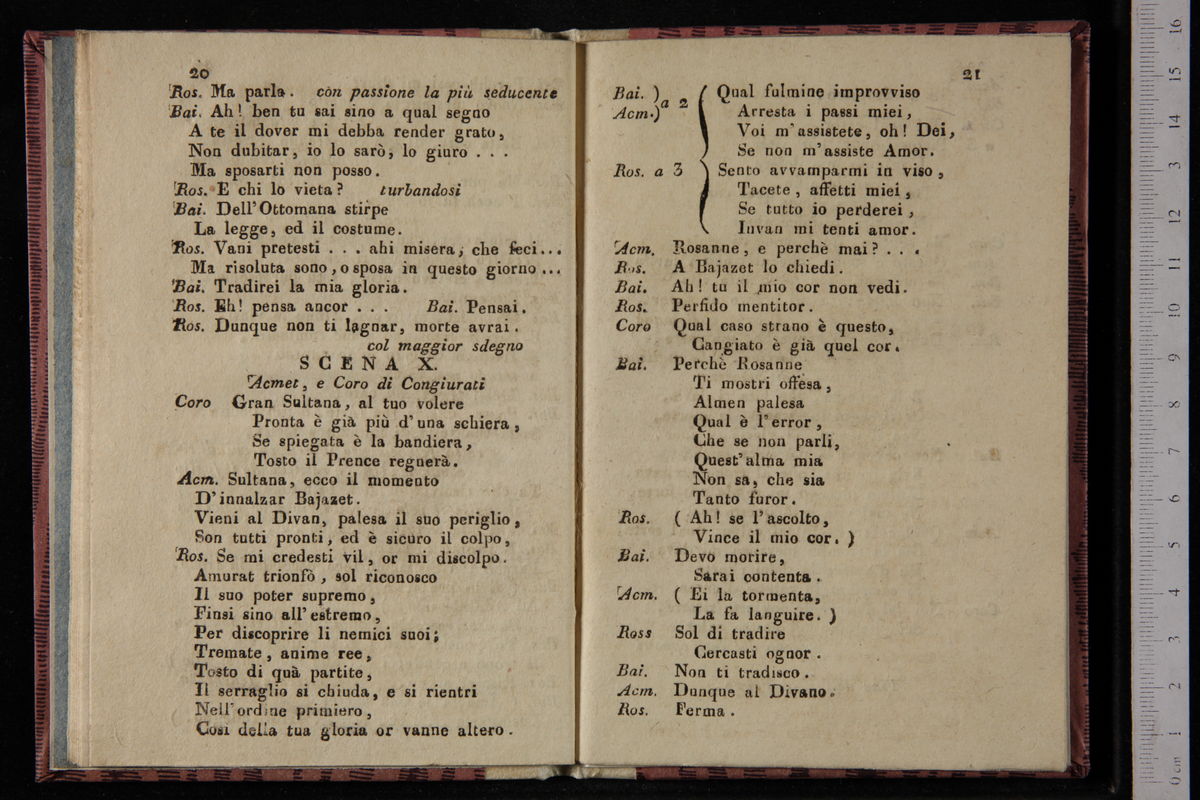 20
Ros. Ma parla. con passione la più seducente
Bai. Ah! ben tu sai sino a qual segno
A te il dover mi debba render grato,
Non dubitar, io lo sarò, lo giuro . . .
Ma sposarti non posso.
Ros. E chi lo vieta? turbandosi
Bai. Dell'Ottomana stirpe
La legge, ed il costume.
Ros. Vani pretesti . . . ahi misera, che feci...
Ma risoluta sono, o sposa in questo giorno ...
Bai. Tradirei la mia gloria.
Ros. Eh! pensa ancor . . . Bai. Pensai.
Ros. Dunque non ti lagnar, morte avrai.
col maggior sdegno
SCENA X.
Acmet, e Coro di Congiurati
Coro Gran Sultana, al tuo volere
Pronta è già più d'una schiera,
Se spiegata è la bandiera,
Tosto il Prence regnerà.
Acm. Sultana, ecco il momento
D'innalzar Bajazet.
Vieni al Divan, palesa il suo periglio,
Son tutti pronti, ed è sicuro il colpo,
Ros. Se mi credesti vil, or mi discolpo.
Amurat trionfò, sol riconosco
Il suo poter supremo,
Finsi sino all'estremo,
Per discoprire li nemici suoi;
Tremate, anime ree,
Tosto di quà partite,
Il serraglio si chiuda, e si rientri
Nell'ordine primiero,
Così della tua gloria or vanne altero.
21
Bai. ) a 2 Qual fulmine improvviso
Acm.) Arresta i passi miei,
Voi m'assistete, oh! Dei,
Se non m'assiste Amor.
Ros. a 3 Sento avvamparmi in viso,
Tacete, affetti miei,
Se tutto io perderei,
Invan mi tenti amor.
Acm. Rosanne, e perchè mai? . . .
Ros. A Bajazet lo chiedi.
Bai. Ah! tu il mio cor non vedi.
Ros. Perfido mentitor.
Coro Qual caso strano è questo,
Cangiato è già quel cor.
Bai. Perchè Rosanne
Ti mostri offesa,
Almen palesa
Qual è l'error,
Che se non parli,
Quest'alma mia
Non sa, che sia
Tanto furor.
Ros. ( Ah! se l'ascolto,
Vince il mio cor. )
Bai. Devo morire,
Sarai contenta.
Acm. ( Ei la tormenta,
La fa languire. )
Ross Sol di tradire
Cercasti ognor.
Bai. Non ti tradisco.
Acm. Dunque al Divano.
Ros. Ferma.
0 cm 1 2 3 4 5 6 7 8 9 10 11 12 13 14 15 16